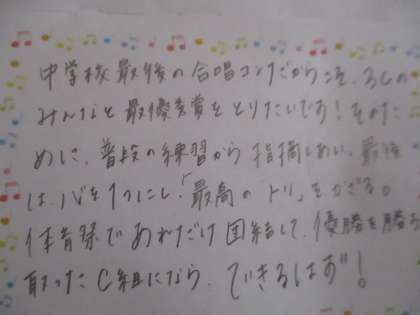 中学校最後の合唱コンだからこそ、3Cの
みんなと最優秀賞をとりたいです!そのた
めに、普段の練習から指摘しあい、最後
は、心を1つにし、「最高のトリ」をかざる。
体育祭であれだけ団結して、優勝を勝ち
取ったC組になら、できるはず!